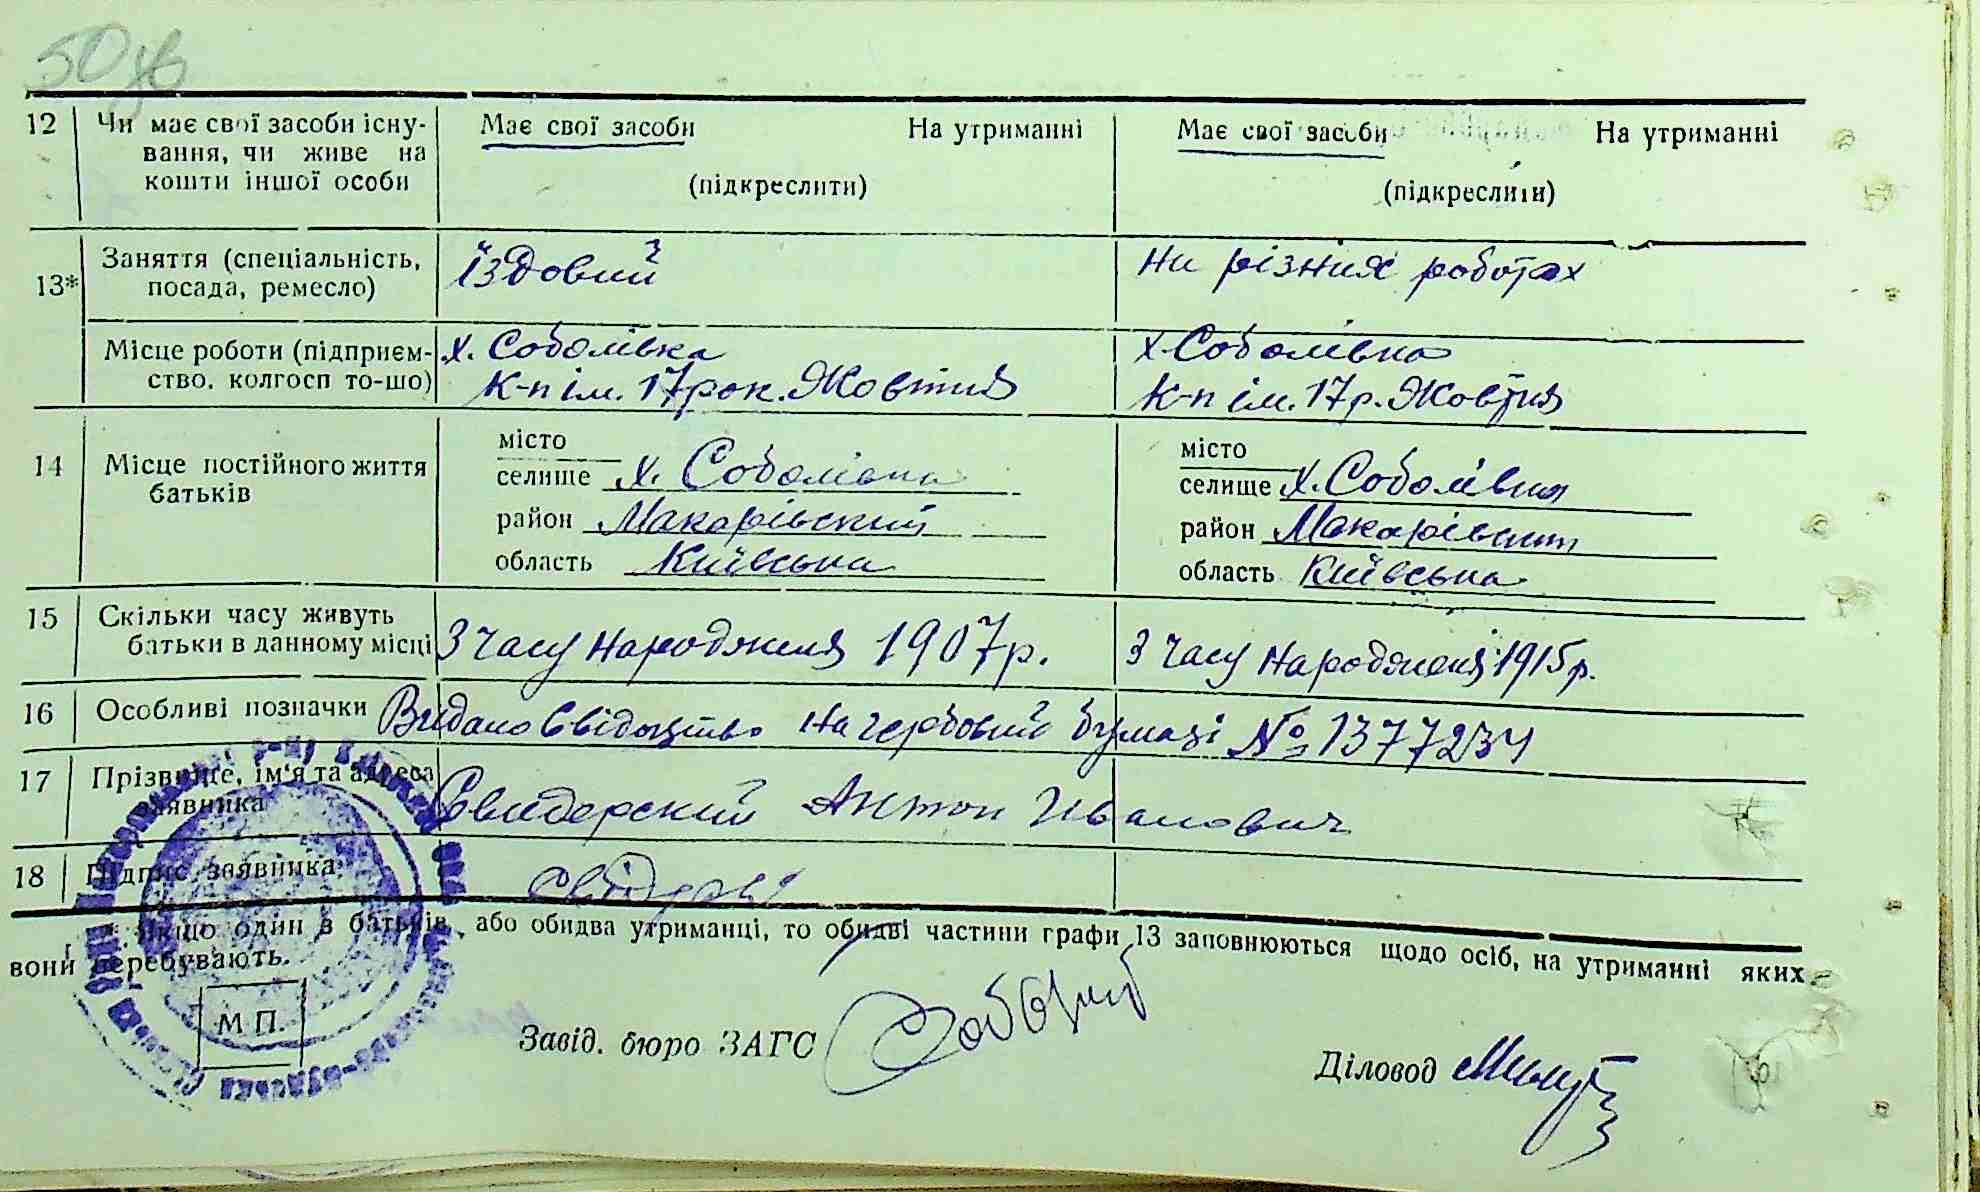 50 зв
12 Чи має свої засоби існу- Має свої засоби На утриманні Має свої засоби На утриманні
вання, чи живе на
кошти іншої особи (підкреслити) (підкреслити)
13* Заняття (спеціальність, Їздовий На різних роботах
посада, ремесло)
Місце роботи (підприєм- х. Соболівка х. Соболівка
ство, колгосп то-що) К-п ім. 17 рок. Жовтня К-п ім. 17 р. Жовтня
14 Місце постійного життя місто місто
батьків селище х. Соболівка селище х. Соболівка
район Макарівский район Макарівский
область Київська область Київська
15 Скільки часу живуть
батьки в данному місці З часу народження 1907 р. З часу народження 1915 р.
16 Особливі позначки Видано свідоцтво на гербовий бумазі № 1377234
17 Прізвище, ім'я та адреса Свидерский Антон Иванович
заявника
18 Підпис заявника
* Якщо один з батьків, або обидва утриманці, то обидві частини графи 13 заповнюються щодо осіб, на утриманні яких
вони перебувають.
М П.
Завід. бюро ЗАГС
Діловод